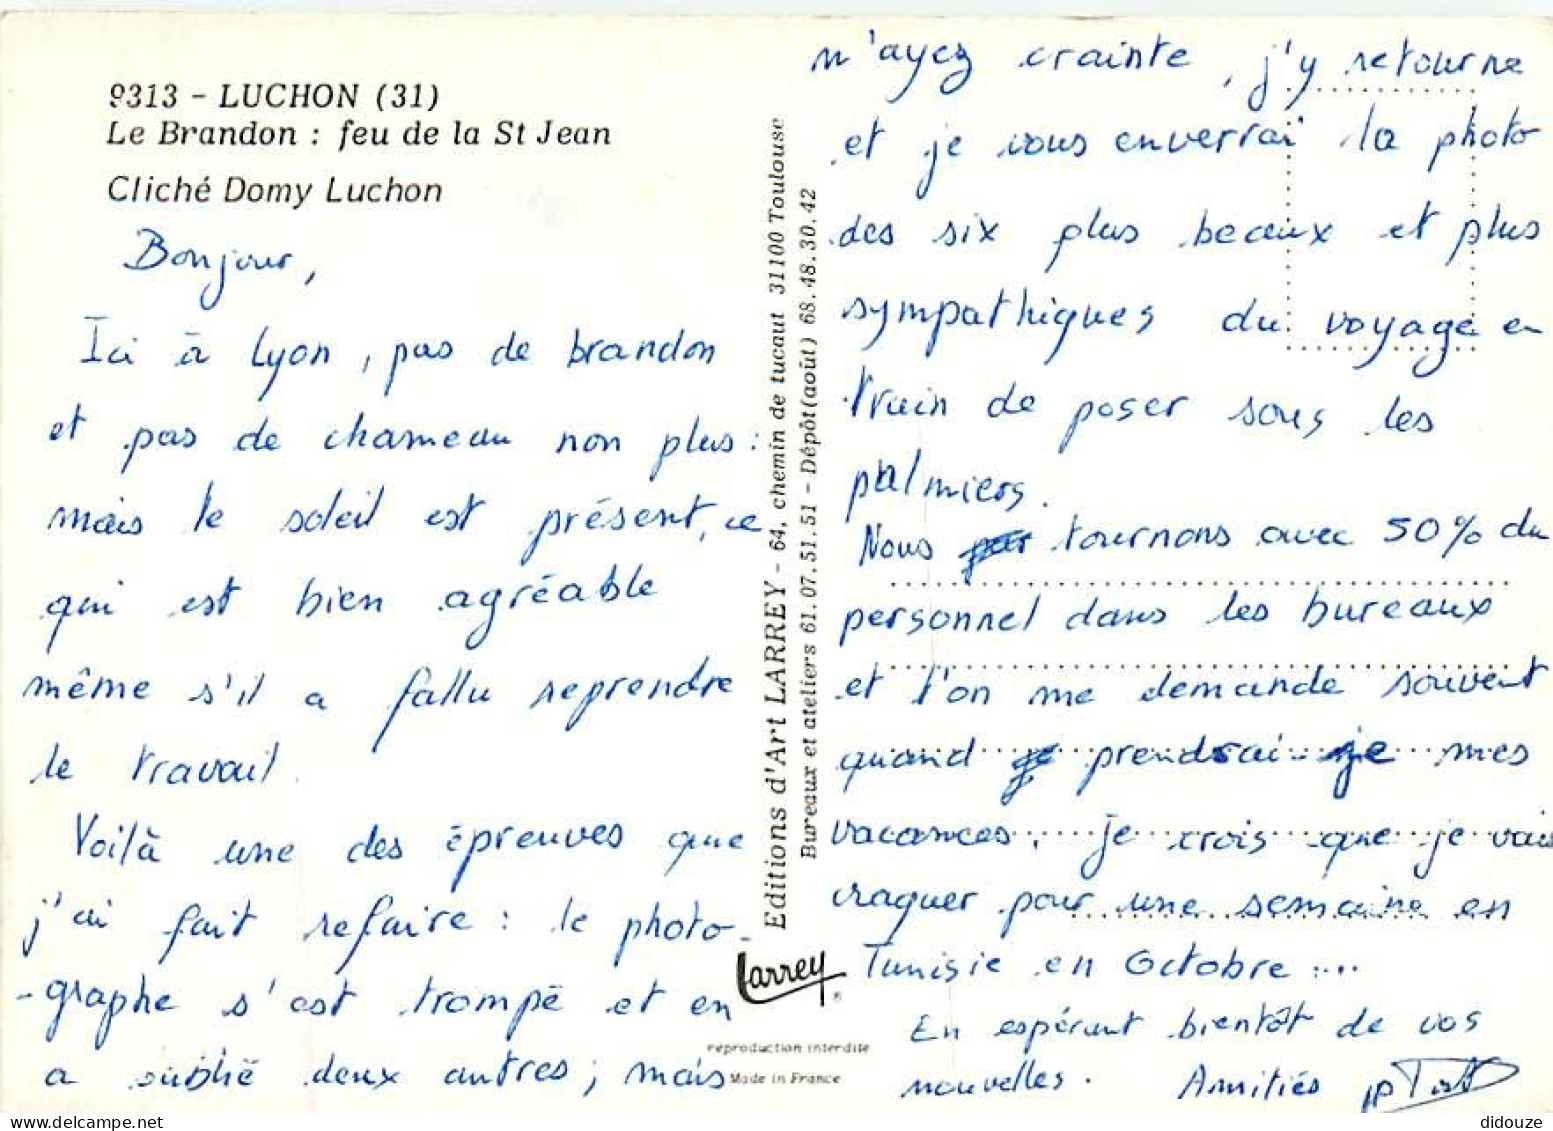 9313 - LUCHON (31)
Le Brandon : feu de la St Jean
Cliché Domy Luchon
Bonjour,
Ici à Lyon, pas de brandon
et pas de chameau non plus :
mais le soleil est présent, ce
qui est bien agréable
même s'il a fallu reprendre
le travail.
Voilà une des épreuves que
j'ai fait refaire : le photo-
-graphe s'est trompé et en
a oublié deux autres ; mais
Editions d'Art LARREY - 64, chemin de tucaut 31100 Toulouse
Bureaux et ateliers 61.07.51.51 - Dépôt (août) 68.48.30.42
Larrey
®
reproduction interdite
Made in France
n'ayez crainte, j'y retourne
et je vous enverrai la photo
des six plus beaux et plus
sympathiques du voyage en
train de poser sous les
palmiers.
Nous tournons avec 50% du
personnel dans les bureaux
et l'on me demande souvent
quand je prendrai-je mes
vacances. Je crois que je vais
craquer pour une semaine en
Tunisie en Octobre ....
En espérant bientôt de vos
nouvelles. Amitiés
didouze